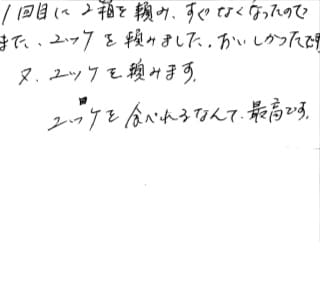 1回目に2箱を頼み、すぐなくなったので
また、ユッケを頼みました。おいしかったです
又、ユッケを頼みます。
ユッケを食べれるなんて、最高です。